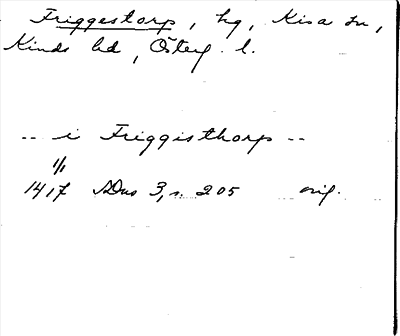 Friggestorp, hg, Kisa sn,
Kinds hd, Österg. l.
-- i Friggisthorp --
1/1
1417 SDns 3, s. 205 orig.